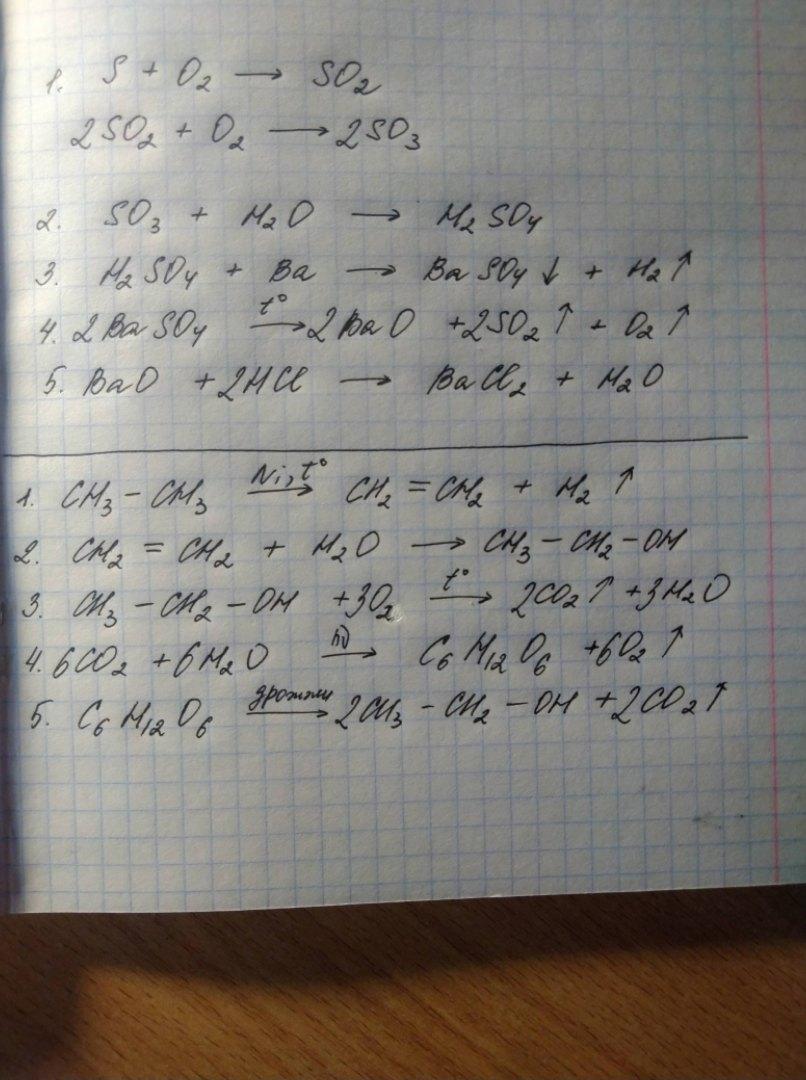 1. S + O₂ → SO₂
2SO₂ + O₂ → 2SO₃
2. SO₃ + H₂O → H₂SO₄
3. H₂SO₄ + Ba → BaSO₄↓ + H₂↑
4. 2BaSO₄ t° → 2BaO + 2SO₂↑ + O₂↑
5. BaO + 2HCl → BaCl₂ + H₂O
1. CH₃ – CH₃ Ni, t° → CH₂ = CH₂ + H₂↑
2. CH₂ = CH₂ + H₂O → CH₃ – CH₂ – OH
3. CH₃ – CH₂ – OH + 3O₂ t° → 2CO₂↑ + 3H₂O
4. 6CO₂ + 6H₂O hν → C₆H₁₂O₆ + 6O₂↑
5. C₆H₁₂O₆ дрожжи → 2CH₃ – CH₂ – OH + 2CO₂↑